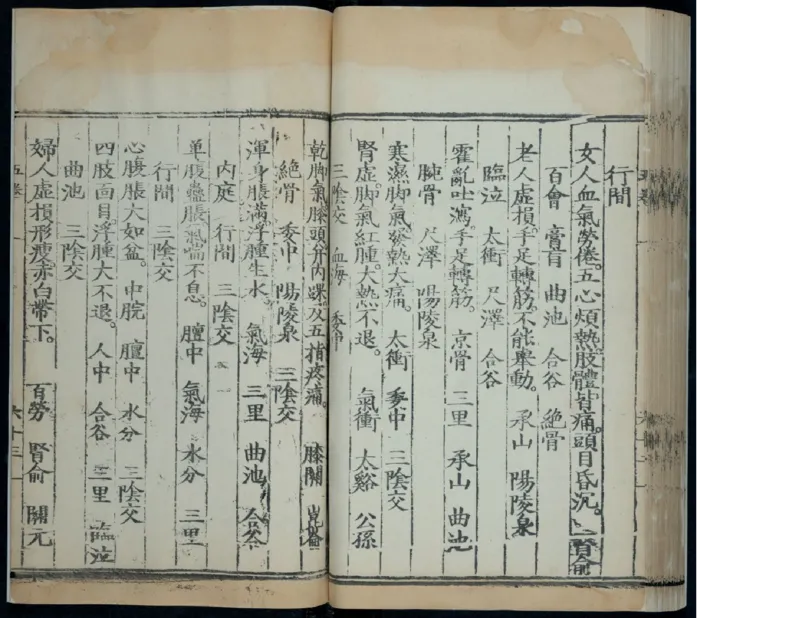 行間
女人血氣勞倦。五心煩熱肢體皆痛。頭目昏沉。 腎俞
百會 膏肓 曲池 合谷 絶骨
老人虛損。手足轉筋。不能舉動。 承山 陽陵泉
臨泣 太衝 尺澤 合谷
霍亂吐瀉。手足轉筋。 京骨 三里 承山 曲池
腕骨 尺澤 陽陵泉
寒濕脚氣發熱大痛。 太衝 委中 三陰交
腎虛。脚氣紅腫。大熱不退。 氣衝 太谿 公孫
三陰交 血海 委中
乾脚氣膝頭并内踝。及五指疼痛。 膝關 崑崙
絶骨 委中 陽陵泉 三陰交
渾身脹滿。浮腫生水。 氣海 三里 曲池 合谷
内庭 行間 三陰交
单腹蠱脹。氣喘不息。 膻中 氣海 水分 三里
行間 三陰交
心腹脹大如盆。 中脘 膻中 水分 三陰交
四肢面目。浮腫大不退。 人中 合谷 三里 臨泣
曲池 三陰交
婦人虛損形瘦。赤白帶下。 百勞 腎俞 關元
五卷
六十三